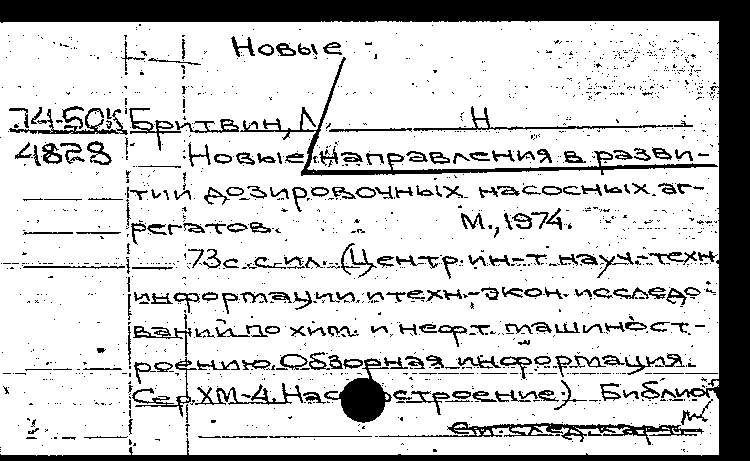 Новые
74-50К Бритвин, Л Н
4828 Новые направления в разви-
тии дозировочных насосных аг-
регатов. М., 1974.
73с. с ил. (Центр. ин-т науч.-техн.
информации и техн.-экон. исследо-
ваний по хим. и нефт. машиност-
роению. Обзорная информация.
Сер. ХМ-4. Нас остроение). Библиог
см. след. карт.